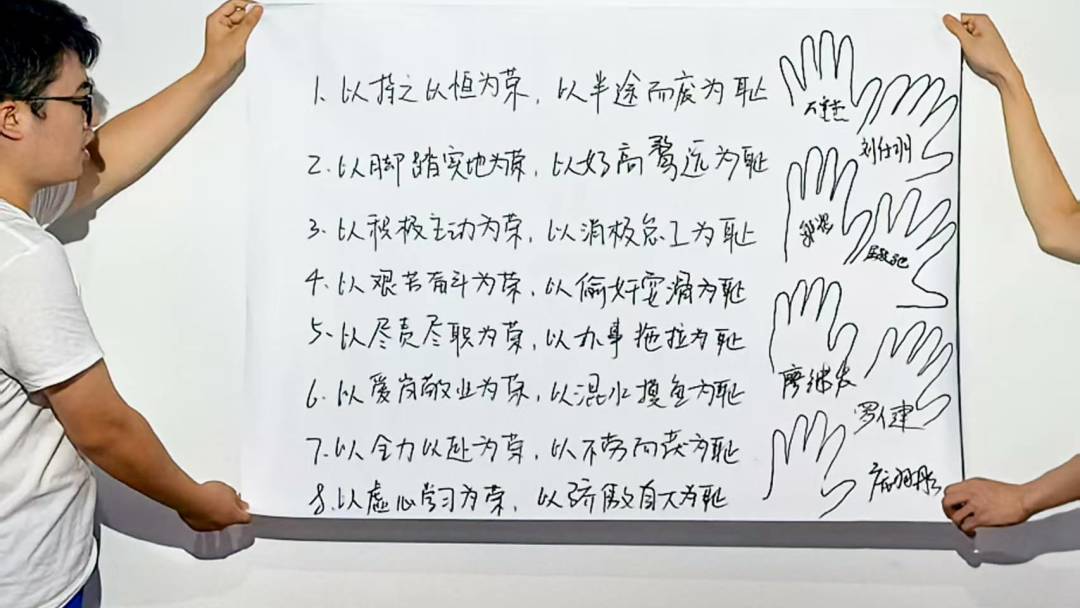 1. 以持之以恒为荣，以半途而废为耻
2. 以脚踏实地为荣，以好高骛远为耻
3. 以积极主动为荣，以消极怠工为耻
4. 以艰苦奋斗为荣，以偷奸耍滑为耻
5. 以尽责尽职为荣，以办事拖拉为耻
6. 以爱岗敬业为荣，以混水摸鱼为耻
7. 以全力以赴为荣，以不劳而获为耻
8. 以虚心学习为荣，以骄傲自大为耻
罗仁建